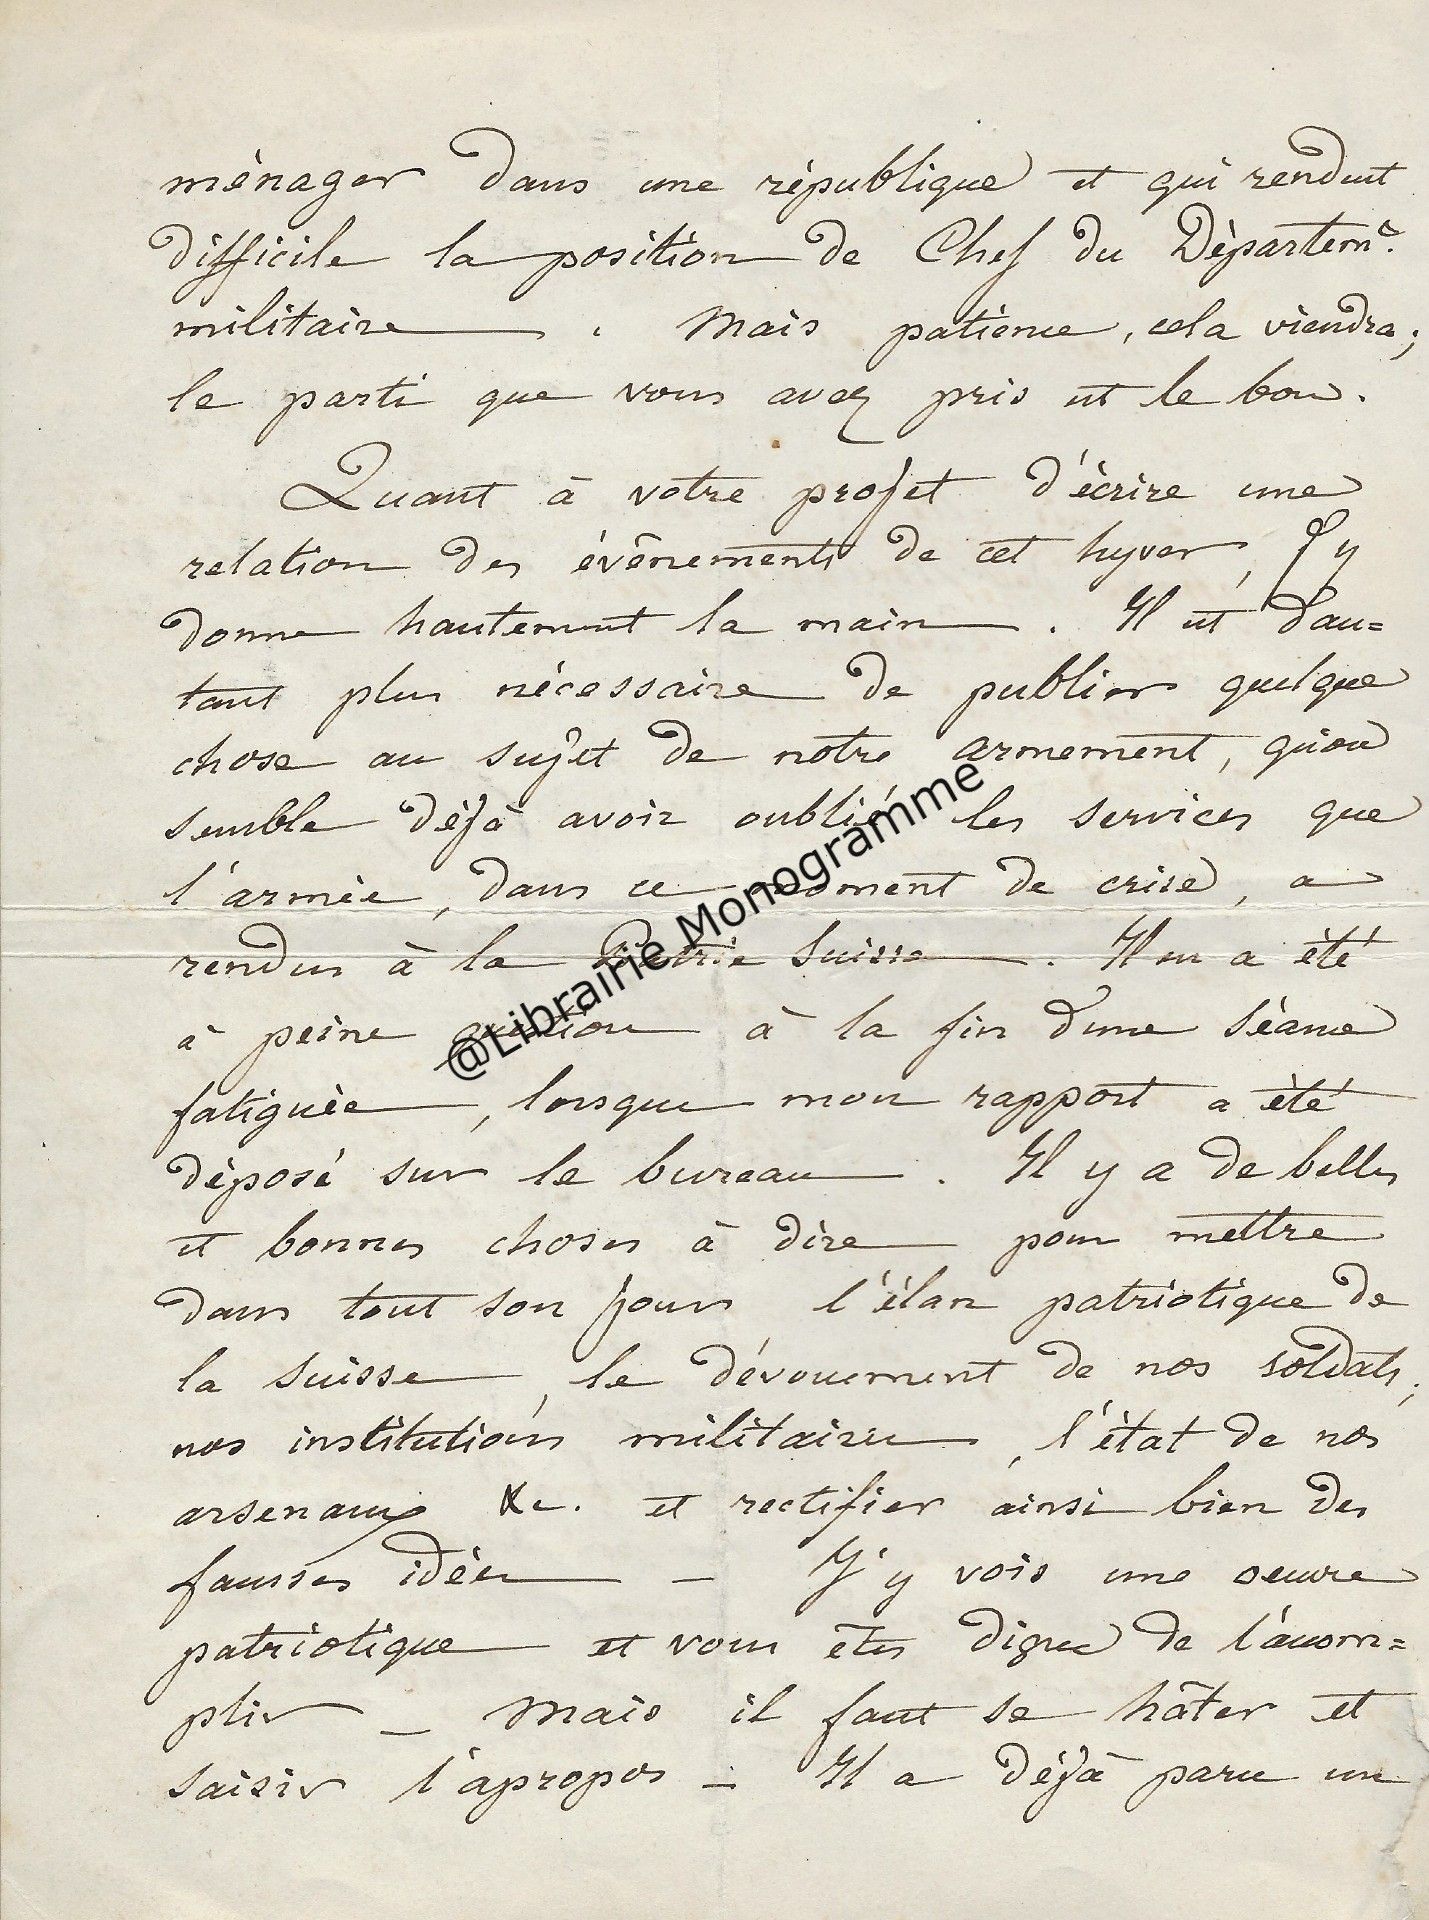 ménager dans une république et qui rendent
difficile la position de Chef du Départemt.
militaire. Mais patience, cela viendra;
le parti que vous avez pris est le bon.
Quant à votre projet d'écrire une
relation des évênements de cet hyver, J'y
donne hautement la main. Il est d'au=
tant plus nécessaire de publier quelque
chose au sujet de notre armement, qu'on
semble déjà avoir oublié les services que
l'armée, dans ce moment de crise, a
rendus à la Patrie Suisse. Il en a été
à peine question à la fin d'une séance
fatiguée, lorsque mon rapport a été
déposé sur le bureau. Il y a de belles
et bonnes choses à dire pour mettre
dans tout son jour l'élan patriotique de
la Suisse, le dévouement de nos soldats,
nos institutions militaires, l'état de nos
arsenaux &c. et rectifier ainsi bien des
fausses idées — J'y vois une oeuvre
patriotique et vous êtes digne de l'accom=
plir — Mais il faut se hâter et
saisir l'apropos — Il a déjà paru un
@Librairie Monogramme